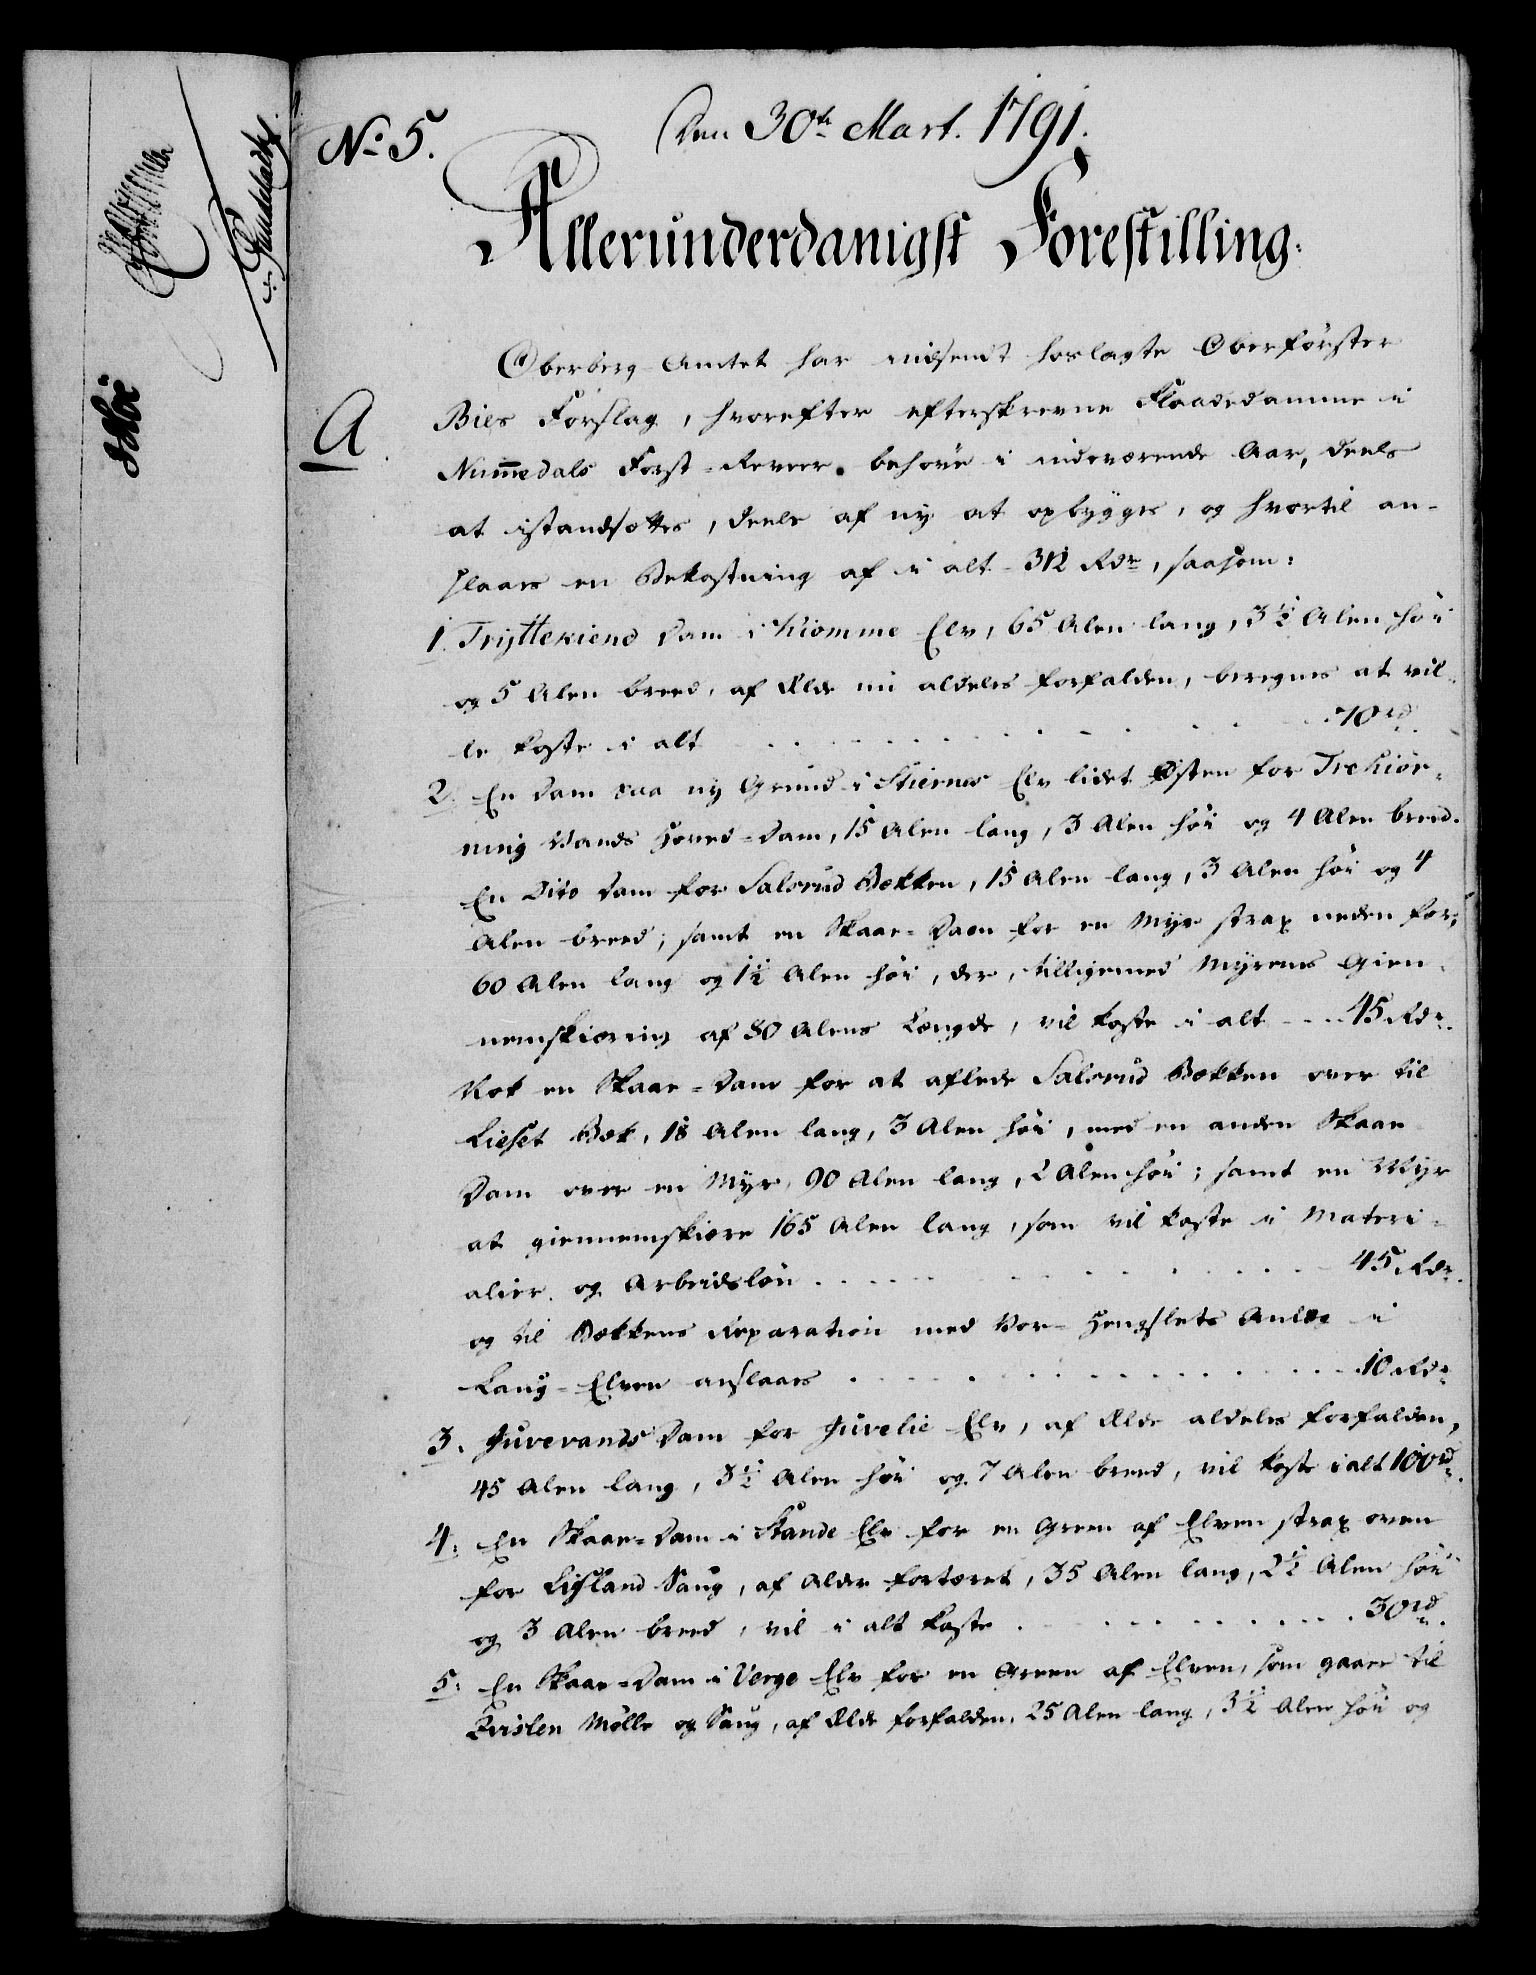 No 5.
Den 30te Mart. 1791.
Allerunderdanigst Forestilling.
Oberberg-Amtet har indsendt hoslagte Oberförster
A.
Bies Forslag, hvorefter efterskrevne Flaadedamme i
Num̅edals Forst-Reveer behøve i indeværende Aar, deels
at istandsættes, deels af ny at opbygges, og hvortil an-
slaaes en Bekostning af i alt 312 Rdr, saasom:
1. Tryttekiend Dam i Kiomme Elv, 65 Alen lang, 3½ Alen høi
og 5 Alen breed, af Ælde nu aldeles forfalden, beregnes at vil-
le koste i alt . . . 70 rd.
2. En Dam paa ny Grund i Stiernes Elv lidet Østen for Trekiør-
ning Vands Hoved-Dam, 15 Alen lang, 3 Alen høi og 4 Alen breed.
En Dito Dam for Salerud Bekken, 15 Alen lang, 3 Alen høi og 4
Alen breed; samt en Skaar-Dam for en Myr strax neden for,
60 Alen lang og 1½ Alen høi, der, tilligemed Myrens Gien-
nemskiæring af 80 Alens Længde, vil koste i alt . . . 45 Rdr.
Nok en Skaar-Dam for at aflede Salerud Bekken over til
Lieset Bek, 18 Alen lang, 3 Alen høi, med en anden Skaar-
Dam over en Myr, 90 Alen lang, 2 Alen høi; samt en Myr
at giennemskiære 165 Alen lang, som vil koste i Materi-
alier og Arbeidsløn . . . 45 Rdr.
og til Bekkens Reparation med Vor-Hengslets Anlæg i
Lang-Elven anslaaes . . . 10 Rdr
3. Juvevands Dam for Juvelie Elv, af Ælde aldeles forfalden,
45 Alen lang, 3½ Alen høi og 7 Alen breed, vil koste i alt 100 rd.
4. En Skaar-Dam i Stande Elv for en Green af Elven strax oven
for Lisland Saug, af Alder fortæret, 35 Alen lang, 2½ Alen høi
og 3 Alen breed, vil i alt koste . . . 30 rd.
5. En Skaar-Dam i Verge Elv for en Green af Elven, som gaaer til
Qvislen Mølle og Saug, af Ælde forfalden, 25 Alen lang, 3½ Alen høi og